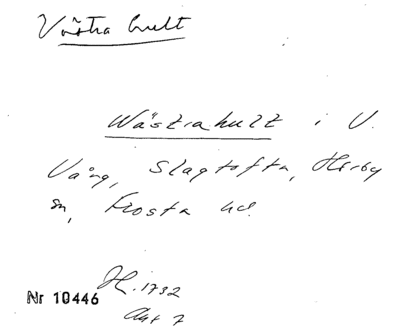 Västra hult
Wästrahult i V.
Vång, Slagtofta, Hörby
sn, Frosta hd.
H. 1732
Nr 10446
Akt 7